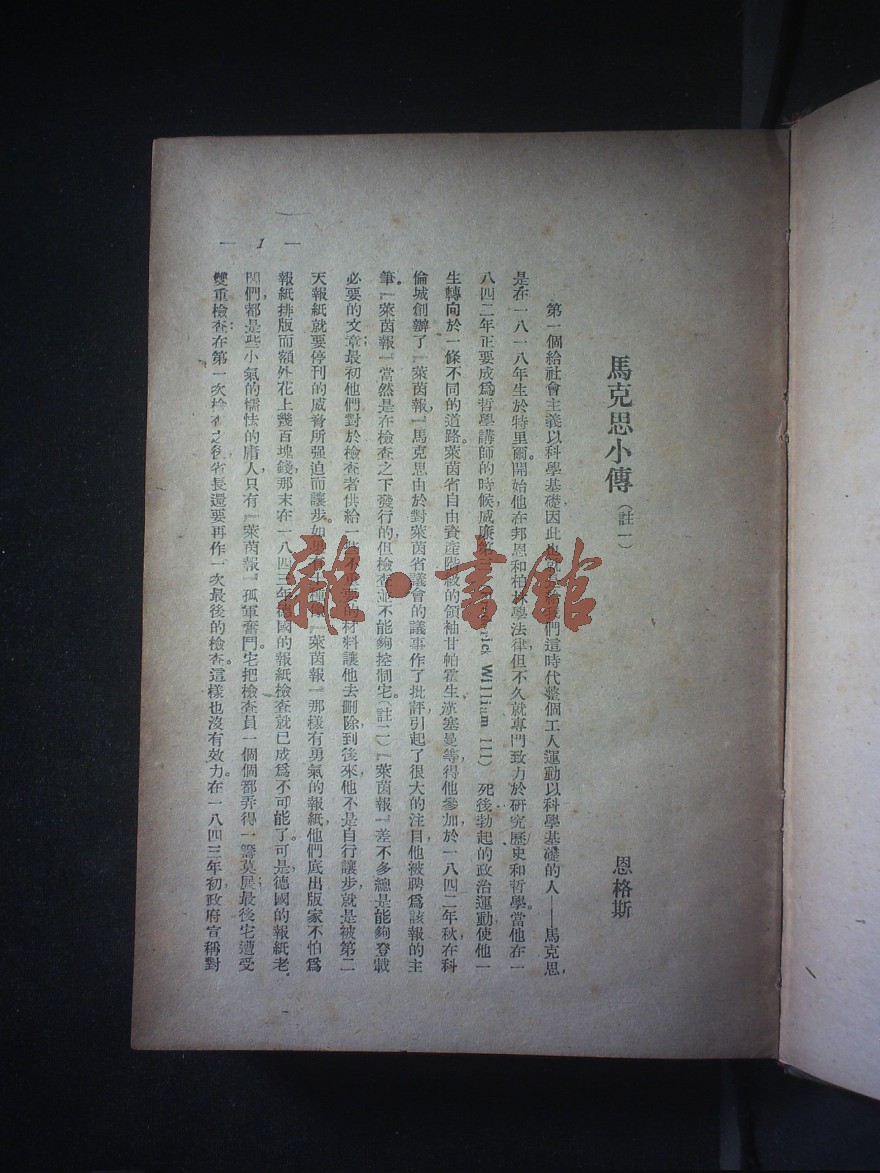 馬克思小傳（註一）
恩格斯
第一個給社會主義以科學基礎因此也我們這時代整個工人運動以科學基礎的人——馬克思，
是在一八一八年生於特里爾開始他在邦恩和柏林學法律但不久就專門致力於研究歷史和哲學。當他在一
八四二年正要成爲哲學講師的時候，威廉rick William III）死後勃起的政治運動使他一
生轉向於一條不同的道路。萊茵省自由資產階級的領袖甘帕霍生，漢塞曼等得他參加，於一八四二年秋在科
倫城創辦了『萊茵報』馬克思由於對萊茵省議會的議事作了批評，引起了很大的注目他被聘爲該報的主
筆。『萊茵報』當然是在檢查之下發行的，但檢查並不能夠控制它。（註二）『萊茵報』差不多總是能夠登載
必要的文章最初他們對於檢查者供給一些不要的材料讓他去刪除，到後來，他不是自行讓步，就是被第二
天報紙就要停刊的威脅所强迫而讓步。如『萊茵報』那樣有勇氣的報紙，他們底出版家不怕爲
報紙排版而額外花上幾百塊錢，那末在一八四三年德國的報紙檢查就已成爲不可能了。可是，德國的報紙老
闆們，都是些小氣的懦怯的庸人，只有『萊茵報』孤軍奮鬥。它把檢查員一個個都弄得一籌莫展；最後它遭受
雙重檢查；在第一次檢查之後，省長還要再作一次最後的檢查。這樣也沒有效力。在一八四三年初，政府宣稱對
— 1 —
雜·書館